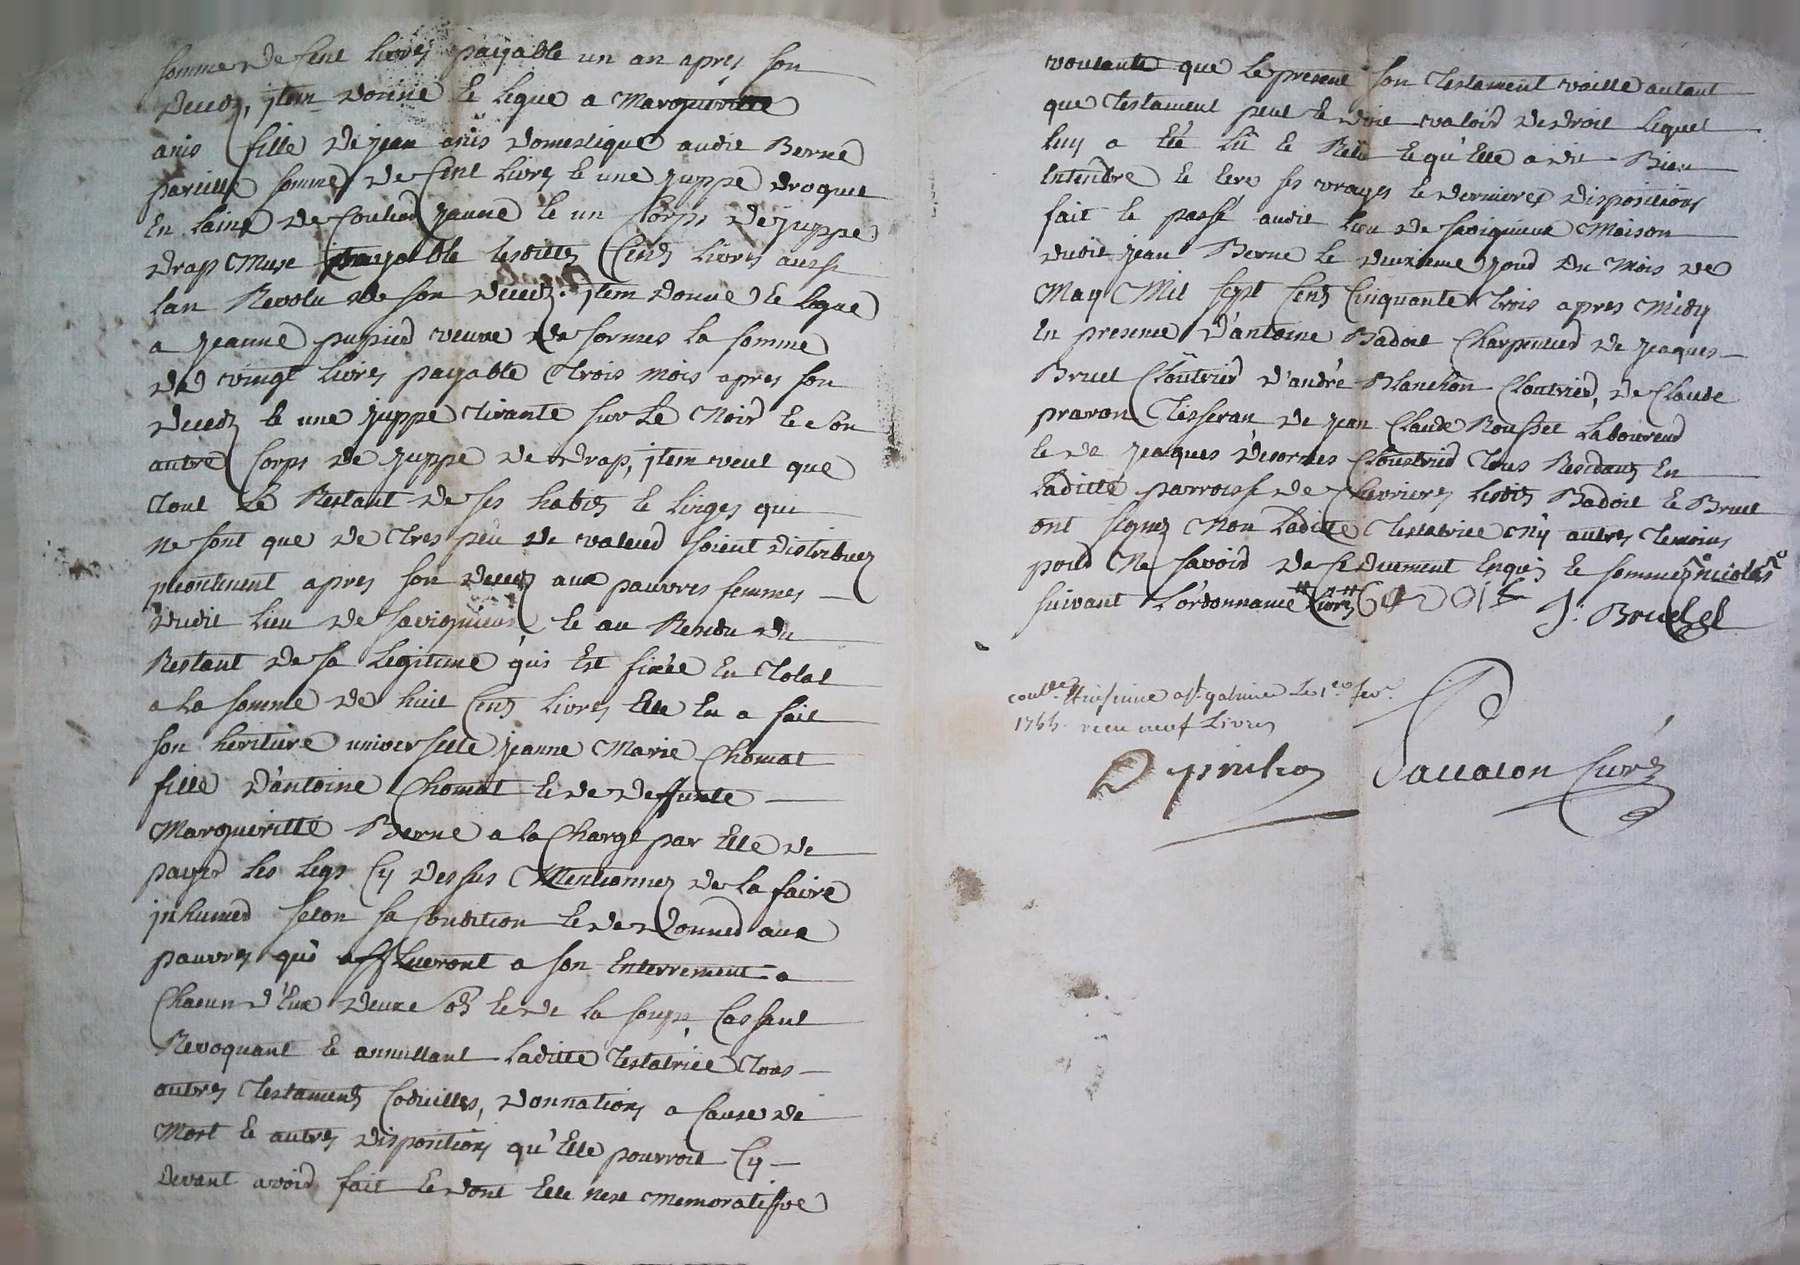 somme de Cent livres payable un an apres son
deceds, jtem donne et legue a Margueritte
anis fille de jean anis domestique audit Berne
pareille somme de Cent livres et une juppe droguet
en laine de Couleur jaune et un Corps de juppe
drap Muse payable lesdittes Cent livres aussi
lan Revolu de son deceds. jtem donne et legue
a jeanne pupied veuve de sormes la somme
de vingt livres payable trois mois apres son
deceds et une juppe tirante sur le Noir et son
autre Corps de juppe de drap, jtem veut que
tout le Restant de ses habits et linges qui
ne sont que de tres peu de valeur soient distribuez
incontinent apres son deceds aux pauvres femmes
dudit lieu de savigneux et au Residu du
Restant de sa legitime qui est fixée en total
a la somme de huit Cents livres elle en a fait
son heritiere universelle jeanne Marie Chomat
fille d'antoine Chomat et de deffunte
Margueritte Berne a la Charge par elle de
payer les legs Cy dessus Mentionnez de la faire
jnhumer selon sa Condition et de donner aux
pauvres qui afflueront a son enterrement a
Chacun d'eux deux sols et de la soupe Cassant
Revoquant et annullant laditte testatrice tous
autres testaments Codicilles, donnations a Cause de
Mort et autres dispositions qu'elle pourroit Cy
devant avoir fait et dont elle n'est Memoratifve
voulante que le present son testament vaille autant
que testament peut et doit valoir de droit lequel
luy a été lû et Relû et qu'elle a dit Bien
entendre et etre ses vrayes et dernieres dispositions
fait et passé audit lieu de savigneux Maison
dudit jean Berne le deuxieme jour du Mois de
May Mil sept Cent Cinquante trois apres Midy
en presence d'antoine Badoil Charpentier de jeaques
Bruel Cloutrier d'andré Blanchon Cloutrier, de Claude
pravon tisseran de jean Claude Rousset Laboureur
et de jeaques desormes Cloustrier tous Residants en
laditte parroisse de Chevrieres lesdits Badoil et Bruel
ont signez Non laditte testatrice Ny autres temoins
pour Ne savoir de Ce duement enquis et sommes
suivant l'ordonnance
J. Bruel
coullé Huisiuine a St galmier Le 1er fevr.
1755. recu neuf Livres
Pallaton Curé